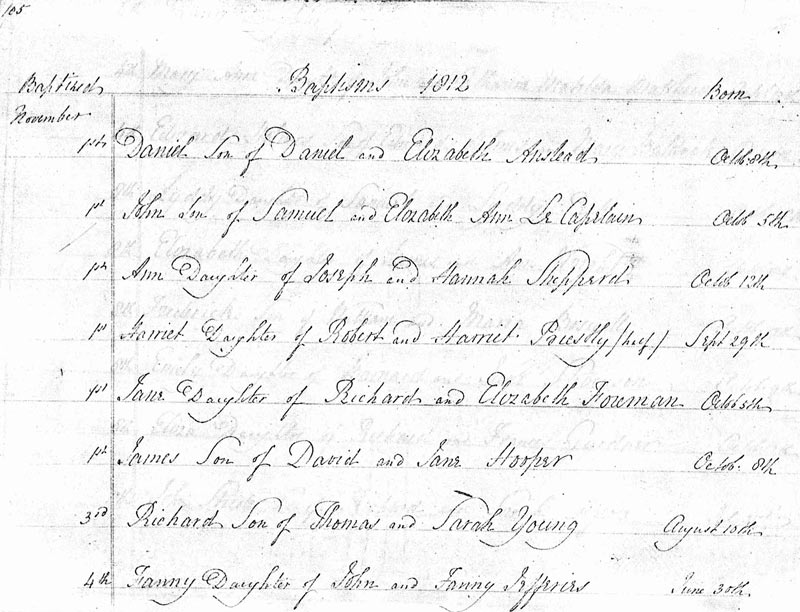 105
Baptized Baptisms 1812 Born
November
1st Daniel Son of Daniel and Elizabeth Anslead Octb. 8th
1st John Son of Samuel and Elizabeth Ann Le Caplain Octb 5th
1st Ann Daughter of Joseph and Hannah Shepperd Octb 12th
1st Harriet Daughter of Robert and Harriet Priestly Sept 29th
1st Jane Daughter of Richard and Elizabeth Foreman Octb 5th
1st James Son of David and Jane Hooper Octb. 8th
3rd Richard Son of Thomas and Sarah Young August 10th
4th Fanny Daughter of John and Fanny Jefferies June 30th